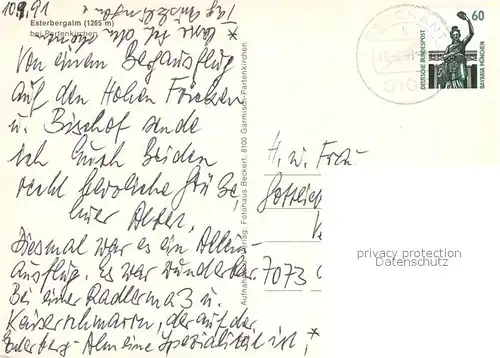 10.9.91
Esterbergalm (1265 m)
bei Partenkirchen
Von einem Bergausflug
auf den Hohen Fricken
u. Bischof sende
ich Euch Beiden
recht herzliche Grüße,
Euer Alter.
Diesmal war es ein Allein-
ausflug. Es war wunderbar
Bei einer Radlermaß u.
Kaiserschmarrn, der auf der
Esterberg-Alm eine Spezialität ist,*
Fotohaus Beckert, 8100 Garmisch-Partenkirchen
60
DEUTSCHE BUNDESPOST
BAVARIA MÜNCHEN
H. u. Frau
Gottlieb
7073
privacy protection
Datenschutz